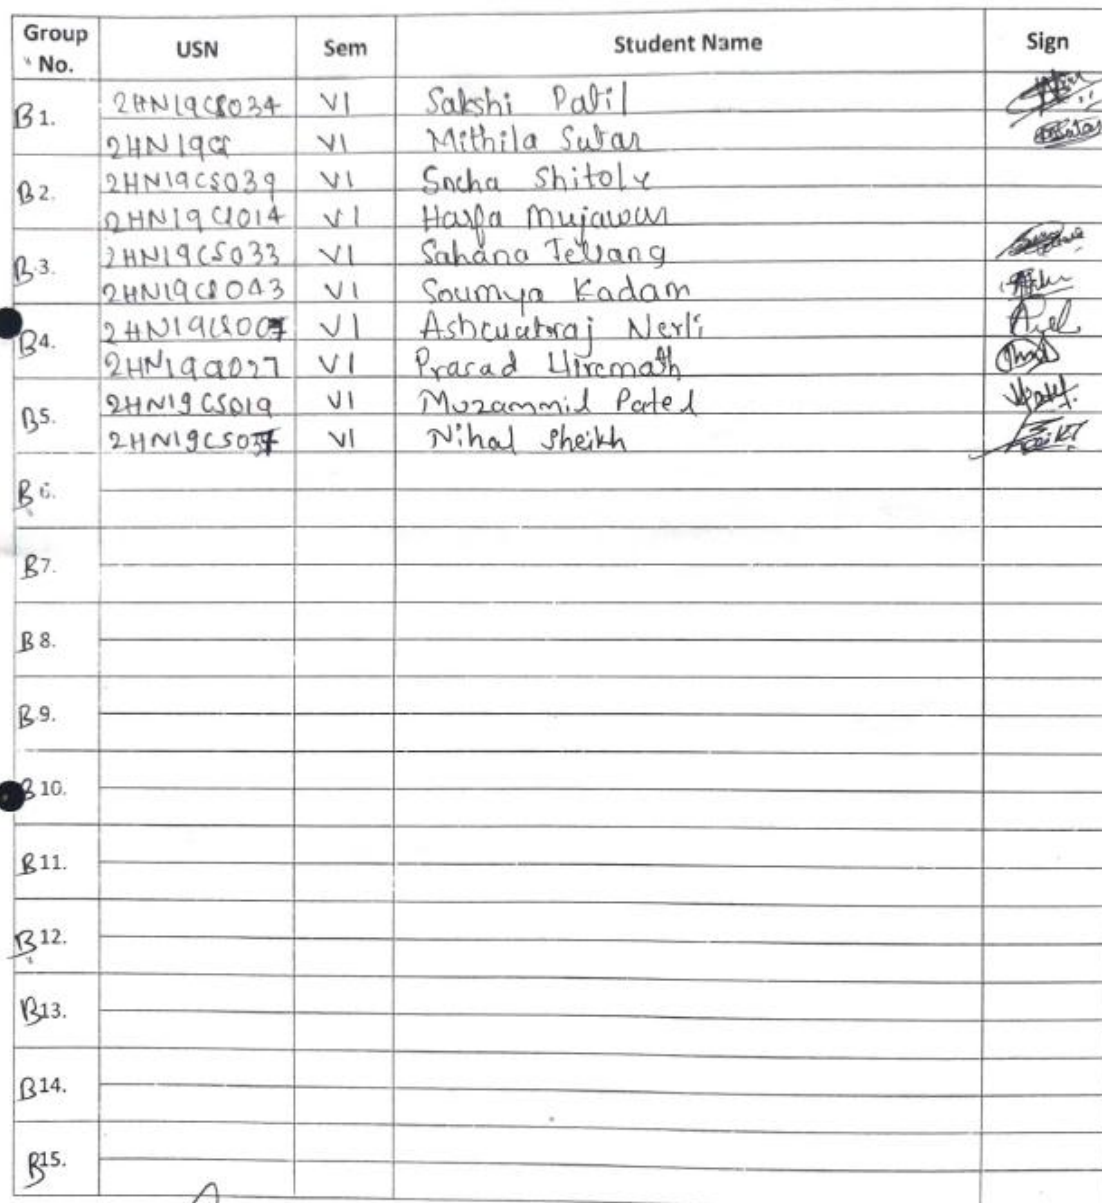 Group No. USN Sem Student Name Sign
B1. 2HN19CS034 VI Sakshi Patil
2HN19CS VI Mithila Sutar
B2. 2HN19CS039 VI Sneha Shitole
2HN19CS014 VI Harfa Mujawar
B3. 2HN19CS033 VI Sahana Telsang
2HN19CS043 VI Soumya Kadam
B4. 2HN19CS007 VI Nerli
2HN19CS027 VI Prasad Hiremath
B5. 2HN19CS019 VI Muzammil Patel
2HN19CS037 VI Nihal Sheikh
B6.
B7.
B8.
B9.
B10.
B11.
B12.
B13.
B14.
B15.